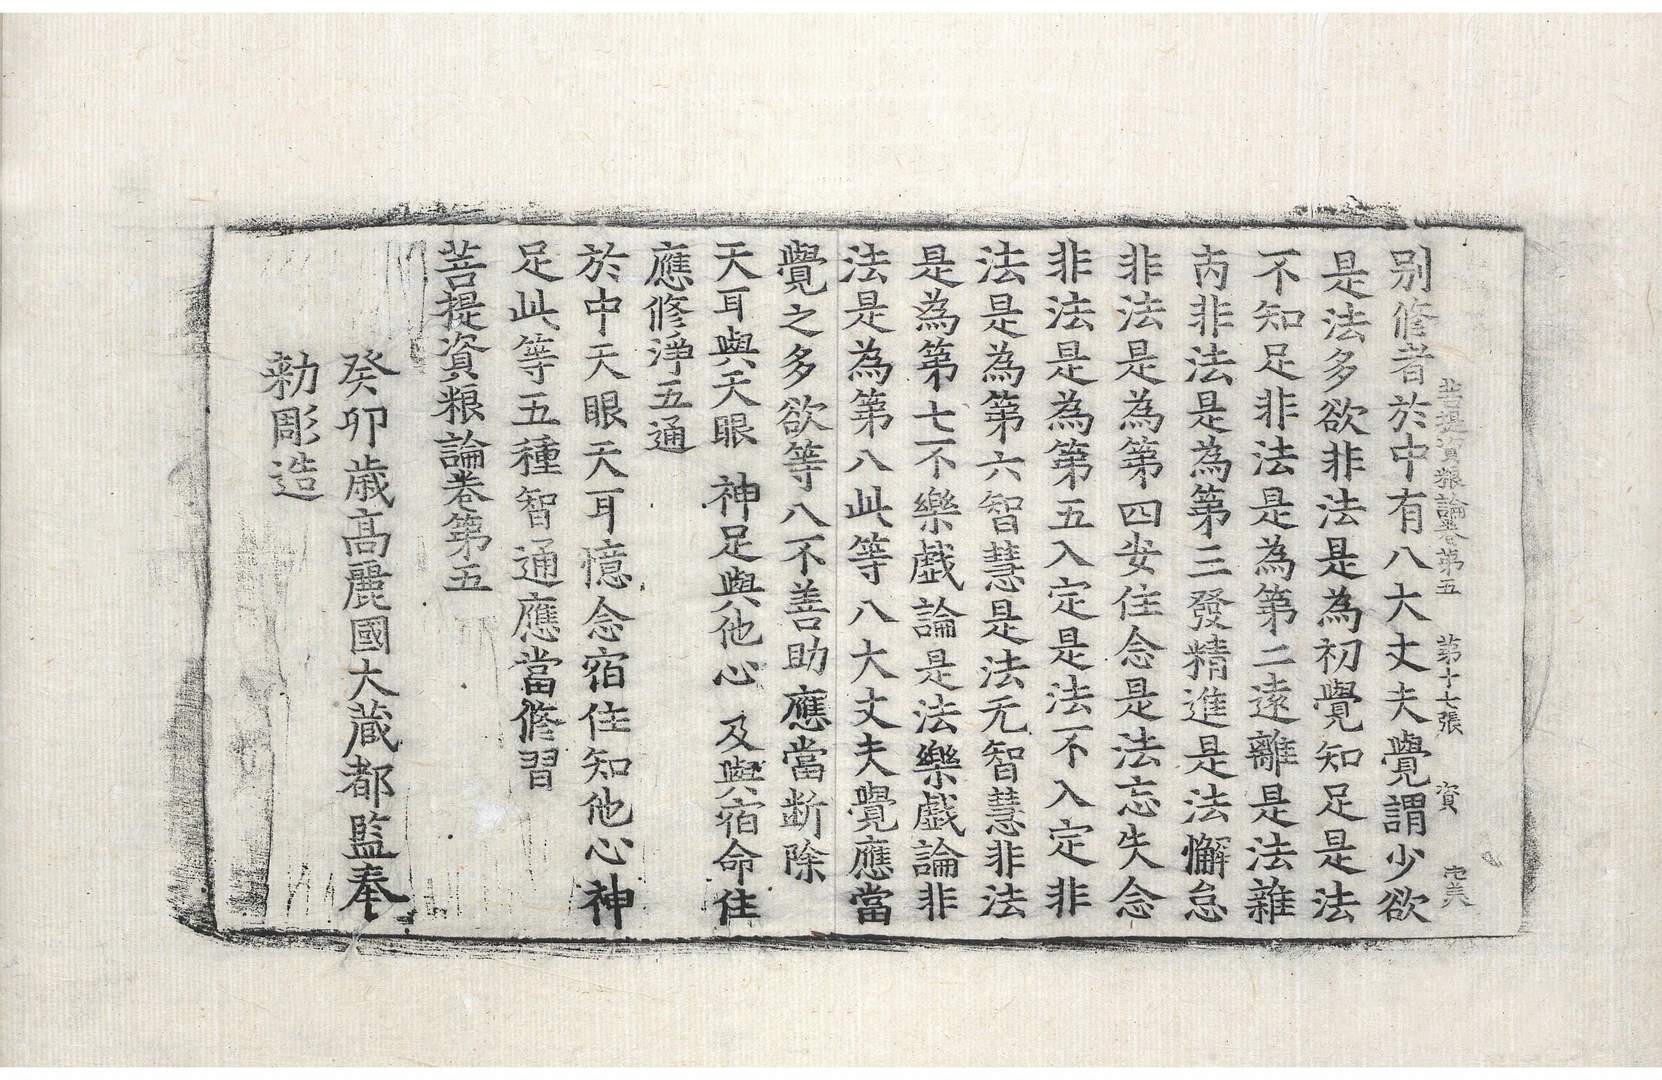 菩提資粮論卷第五　第十七張　資
别修者於中有八大丈夫覺謂少欲
是法多欲非法是為初覺知足是法
不知足非法是為第二遠離是法雜
丙非法是為第三發精進是法懈怠
非法是為第四安住念是法忘失念
非法是為第五入定是法不入定非
法是為第六智慧是法无智慧非法
是為第七不樂戲論是法樂戲論非
法是為第八此等八大丈夫覺應當
覺之多欲等八不善助應當断除
天耳與天眼　神足與他心　及與宿命住
應修淨五通
於中天眼天耳憶念宿住知他心神
足此等五種智通應當修習
菩提資粮論卷第五
癸卯歲高麗國大藏都監奉
勑彫造